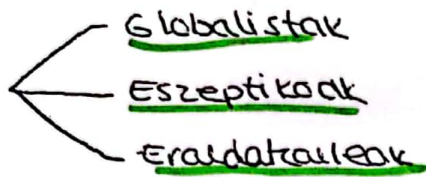 Globalistak
Eszeptikoak
Eraldatzaileak